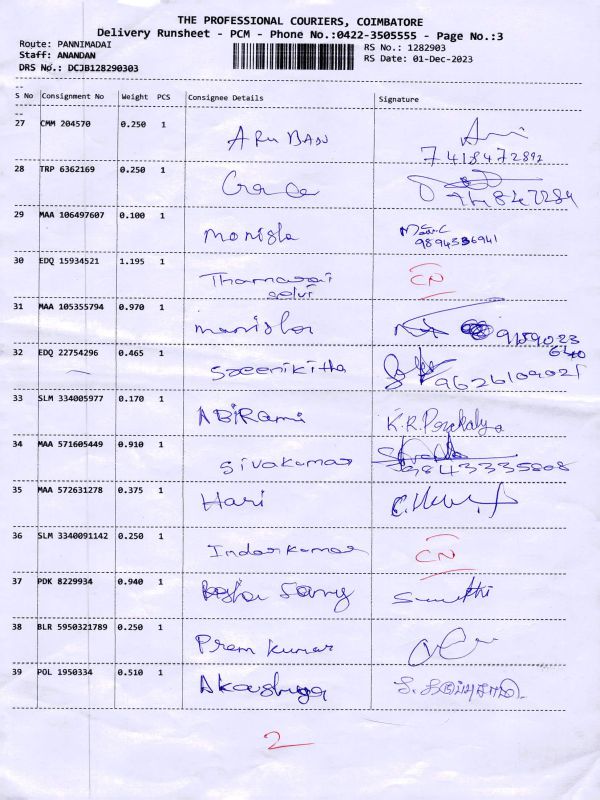 THE PROFESSIONAL COURIERS, COIMBATORE
Delivery Runsheet - PCM - Phone No.:0422-3505555 - Page No.:3
Route: PANNIMADAI RS No.: 1282903
Staff: ANANDAN RS Date: 01-Dec-2023
DRS No.: DCJB128290303
S No Consignment No Weight PCS Consignee Details Signature
27 CMM 204570 0.250 1 ARUBAN
7418472892
28 TRP 6362169 0.250 1
29 MAA 106497607 0.100 1 Monisha
9894536941
30 EDQ 15934521 1.195 1 Thamarai CN
selvi
31 MAA 105355794 0.970 1 Manisha 9159023
640
32 EDQ 22754296 0.465 1 Sreenikitha
9626109021
33 SLM 334005977 0.170 1 ABiRami K.R.
34 MAA 571605449 0.910 1 Sivakumar
9843335808
35 MAA 572631278 0.375 1 Hari
36 SLM 3340091142 0.250 1 Indarkumar CN
37 PDK 8229934 0.940 1 Sumithi
38 BLR 5950321789 0.250 1 Prem kumar
39 POL 1950334 0.510 1
2